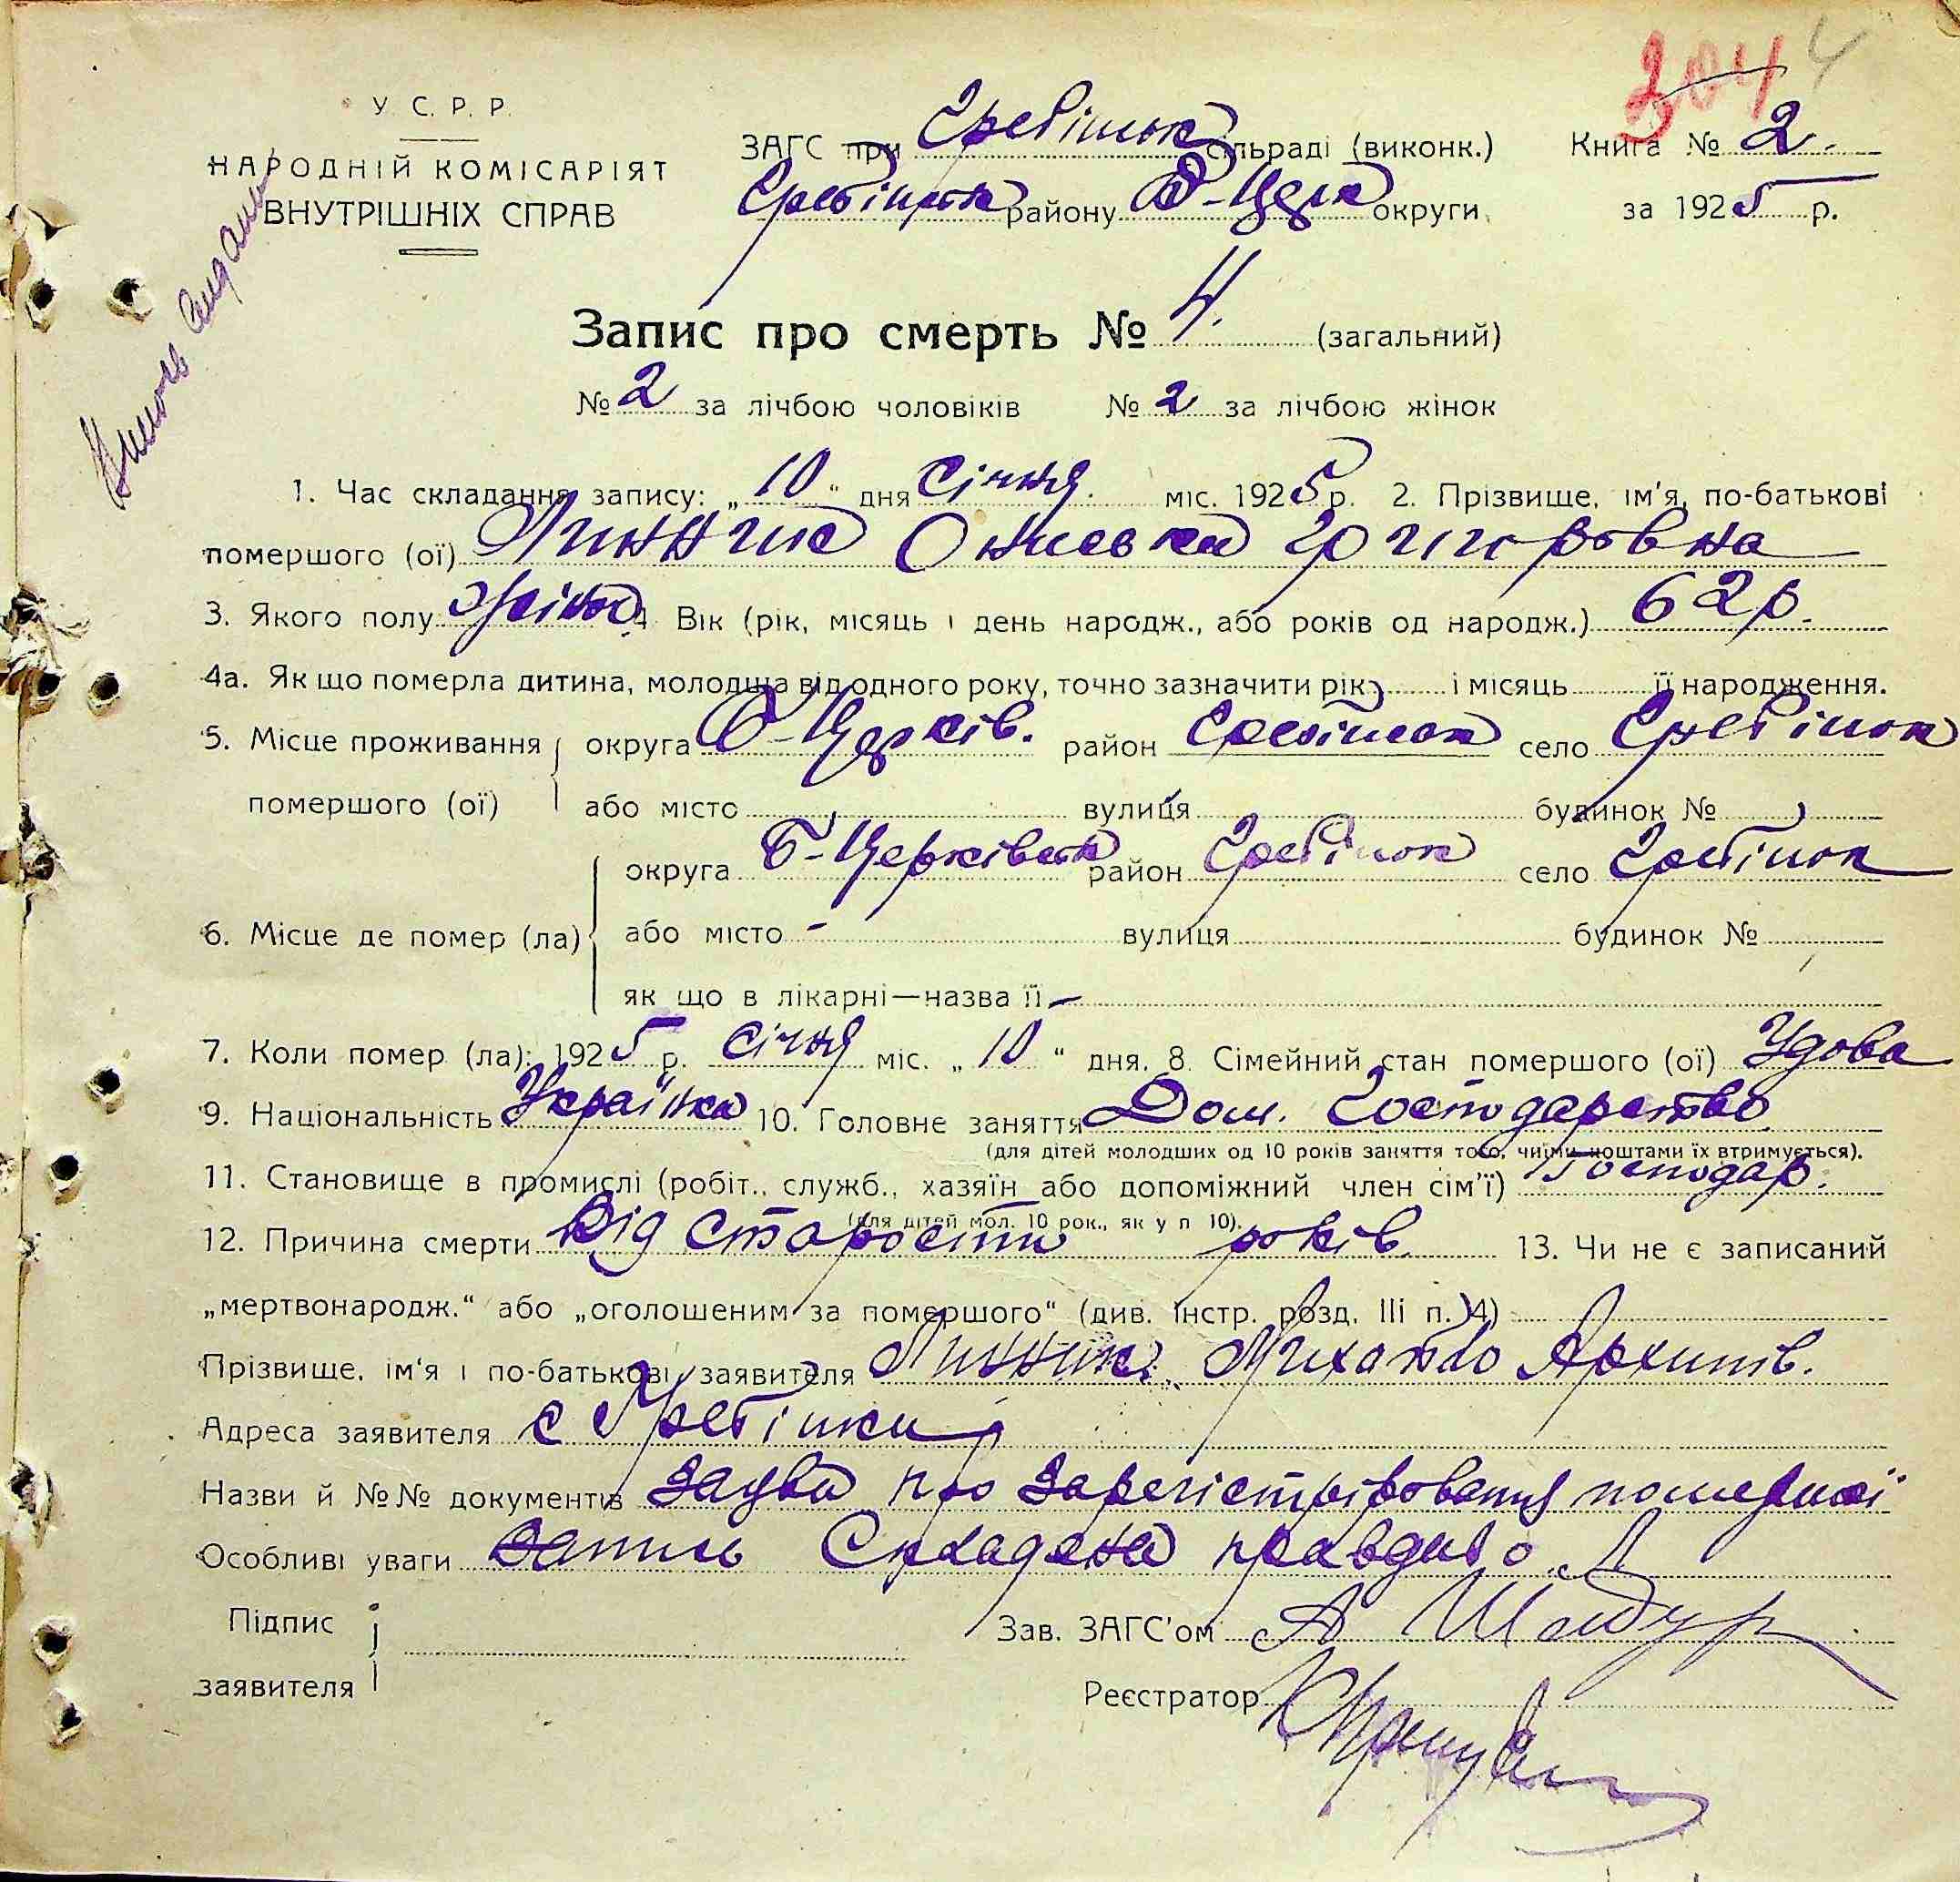 304 4
У. С. Р. Р.
НАРОДНІЙ КОМІСАРІЯТ
ВНУТРІШНІХ СПРАВ
ЗАГС при Гребінок сільраді (виконк.)
Гребінок району Б-Церк округи
Книга № 2.
за 1925 р.
Запис про смерть № 4. (загальний)
№ 2 за лічбою чоловіків № 2 за лічбою жінок
1. Час складання запису: „10“ дня Січня. міс. 1925 р. 2. Прізвище, ім'я, по-батькові
помершого (ої) Линник Григоровна
3. Якого полу жіноч. 4 Вік (рік, місяць і день народж., або років од народж.) 62 р.
4а. Як що померла дитина, молодша від одного року, точно зазначити рік і місяць її народження.
5. Місце проживання округа Б-Церків. район Гребінок село Гребінок
помершого (ої) або місто вулиця будинок №
округа Б-Церківськ район Гребінок село Гребінок
6. Місце де помер (ла) або місто - вулиця будинок №
як що в лікарні—назва її —
7. Коли помер (ла): 1925 р. Січня міс. „10“ дня. 8. Сімейний стан помершого (ої) Удова
9. Національність Українка 10. Головне заняття Дом. Господарство
(для дітей молодших од 10 років заняття того, чиїми коштами їх втримується).
11. Становище в промислі (робіт., служб., хазяїн або допоміжний член сім'ї) Господар.
(для дітей мол. 10 рок., як у п 10).
12. Причина смерти Від Старости років 13. Чи не є записаний
„мертвонародж.“ або „оголошеним за помершого“ (див. Інстр. розд. III п. 4)
Прізвище, ім'я і по-батькові заявителя Линник Михайло Архипів.
Адреса заявителя с Гребінки
Назви й №№ документів Заява про Зарегістрірования помершої
Особливі уваги Запись Складена правдиво
Підпис
заявителя
Зав. ЗАГС'ом А
Реєстратор